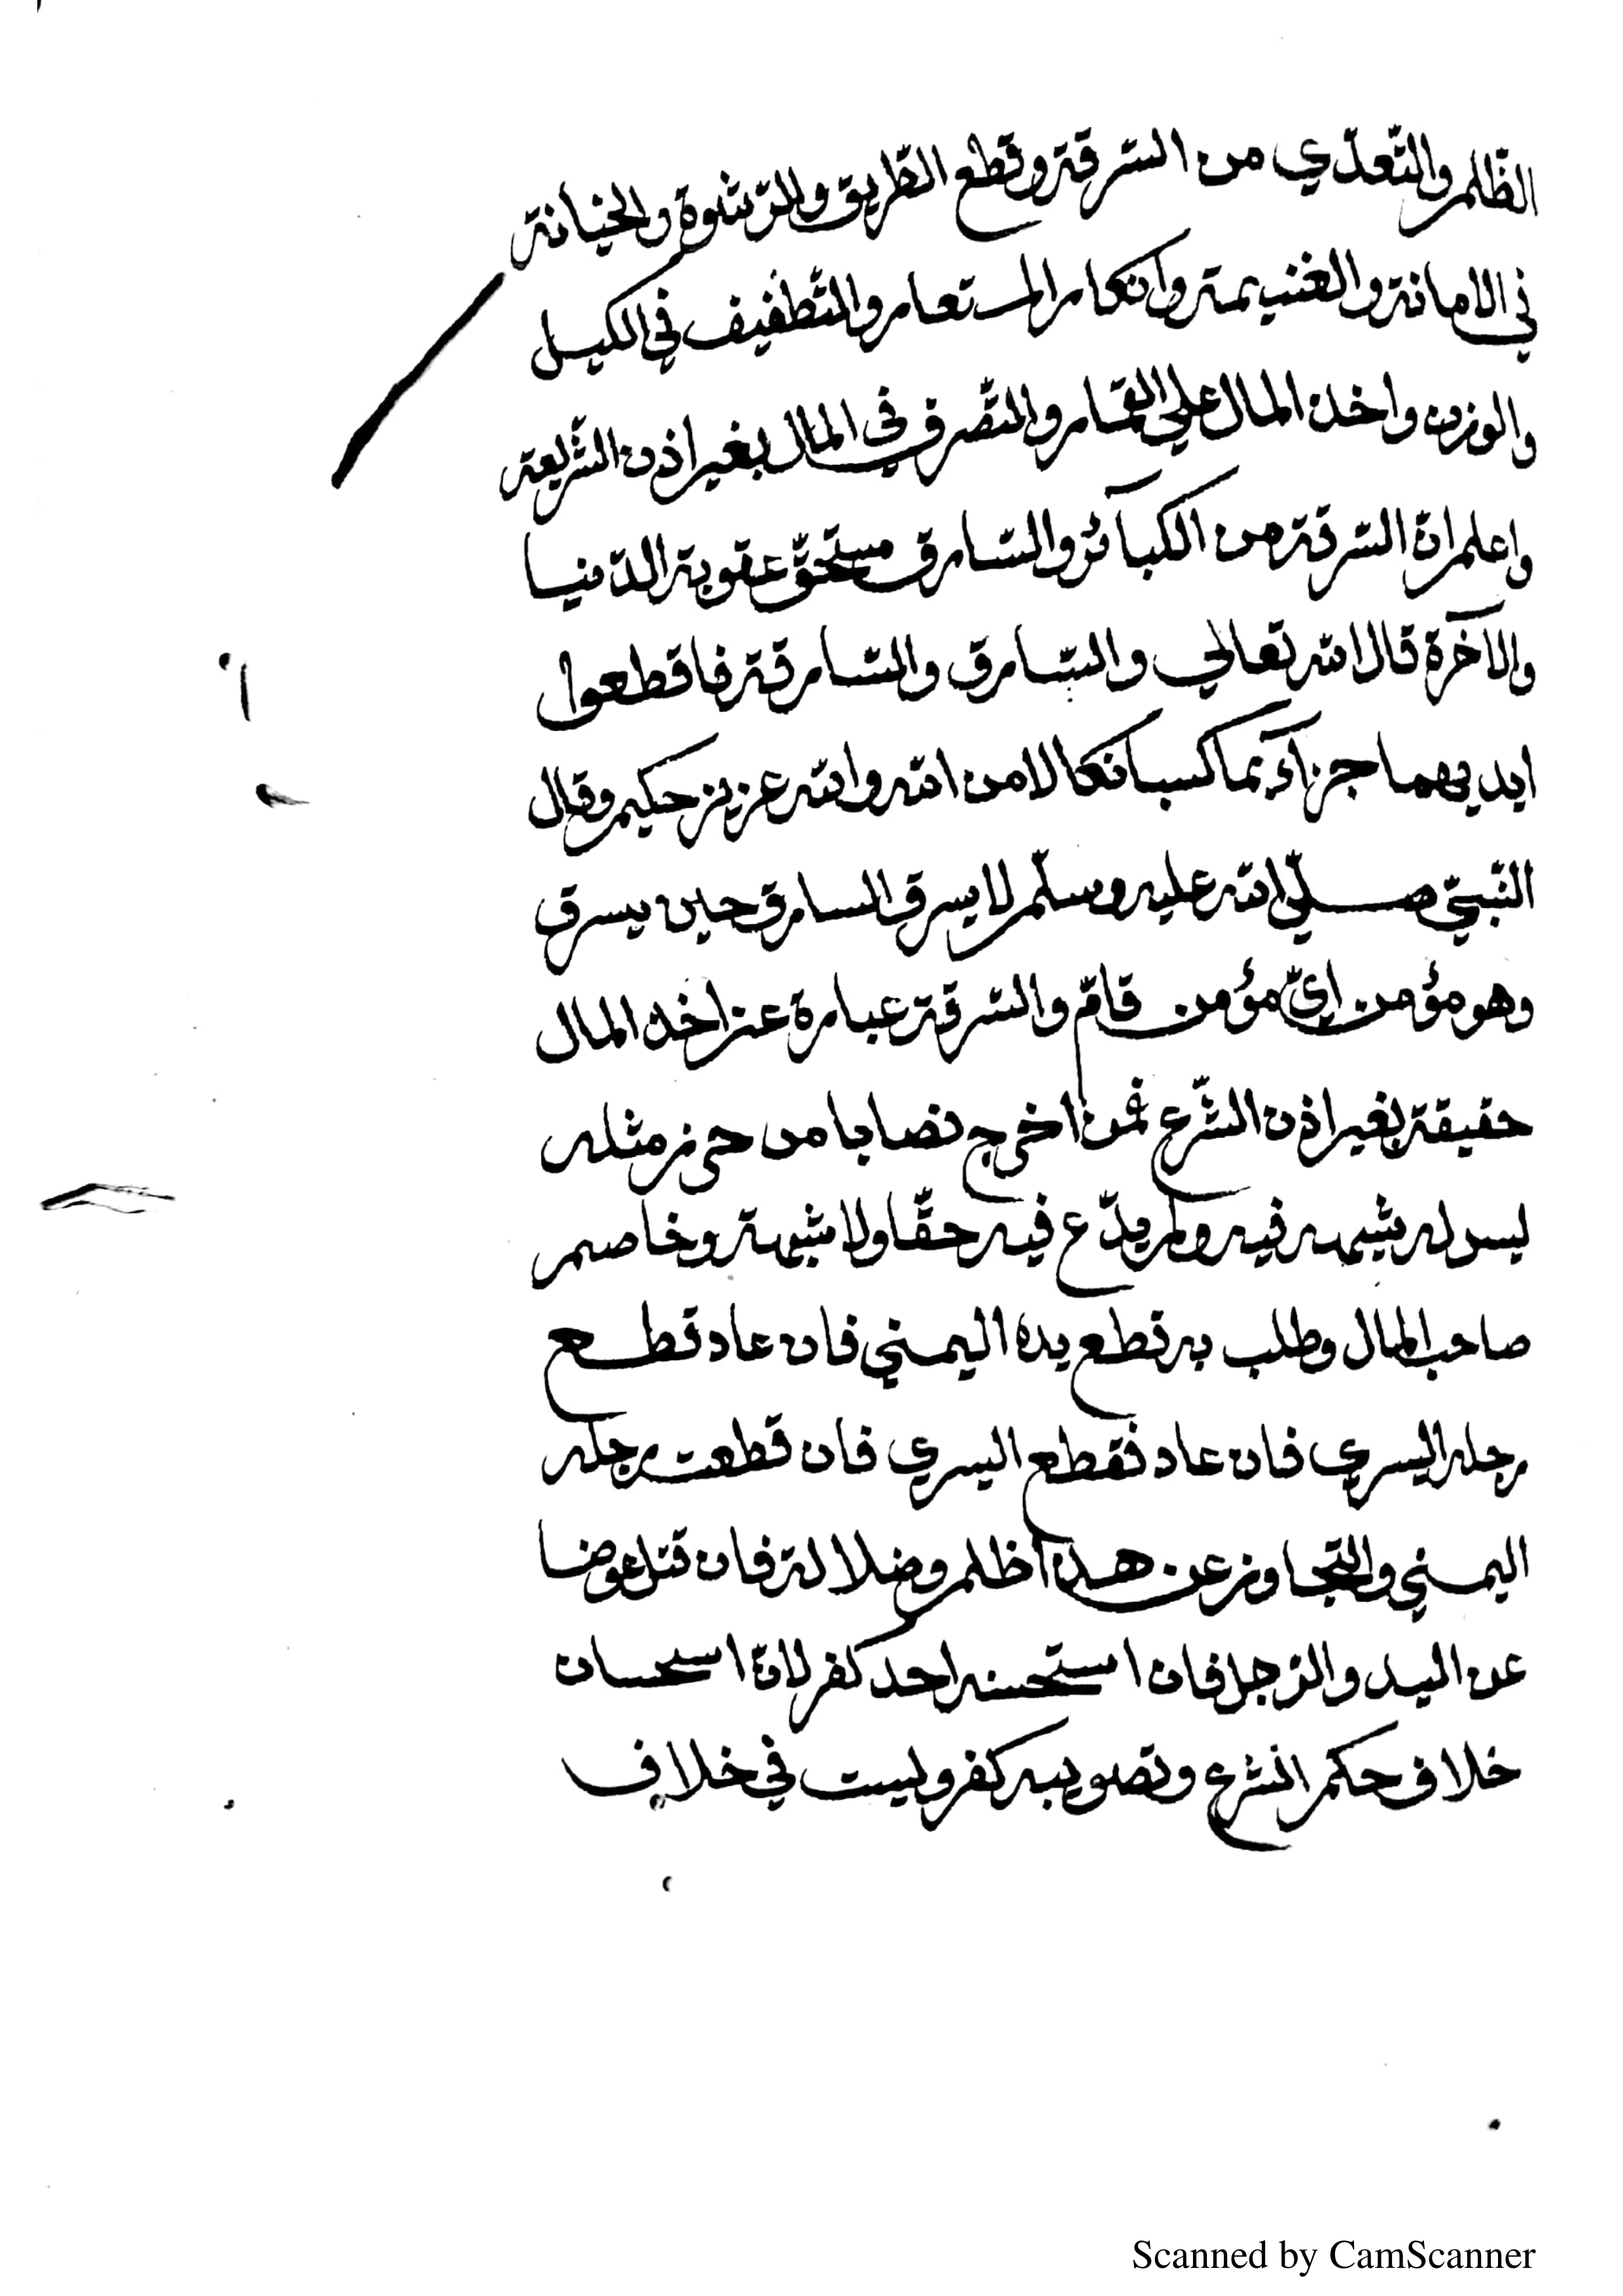 الظّلم والتّعدّي من السّرقة وقطع الطّريق والرّشوة والخيانة
في الامانة والغنيمة وانكار المستعار والتّطفيف في الكيل
والوزن واخذ المال علي القمار والتّصرف في المال بغير اذن الشّريعة
واعلم انّ السّرقة من الكبائر والسّارق مستحقّ عقوبة الدّنيا
والآخرة قال الله تعالي والسّارق والسّارقة فاقطعوا
ايديهما جزاء بما كسبا نكالا من الله والله عزيز حكيم وقال
النّبيّ صلّي الله عليه وسلّم لا يسرق السارق حين يسرق
وهو مؤمن ايّ مؤمن تامّ والسّرقة عبارة عن اخذ المال
حقيقة بغير اذن الشّرع فمن اخرج نصابا من حرز مثله
ليس له شبهة فيه ولم يدّع فيه حقّا ولا شبهة وخاصم
صاحب المال وطلب به قطع يده اليمني فان عاد قطع
رجله اليسري فان عاد فقطع اليسري فان قطعت رجله
اليمني والتّجاوز عن هذا ظلم وضلالة فان قتل عوضا
عن اليد والرّجل فان استحسنه احد كفر لانّ استحسان
خلاف حكم الشّرع وتصويبه كفر وليست في خلاف
Scanned by CamScanner